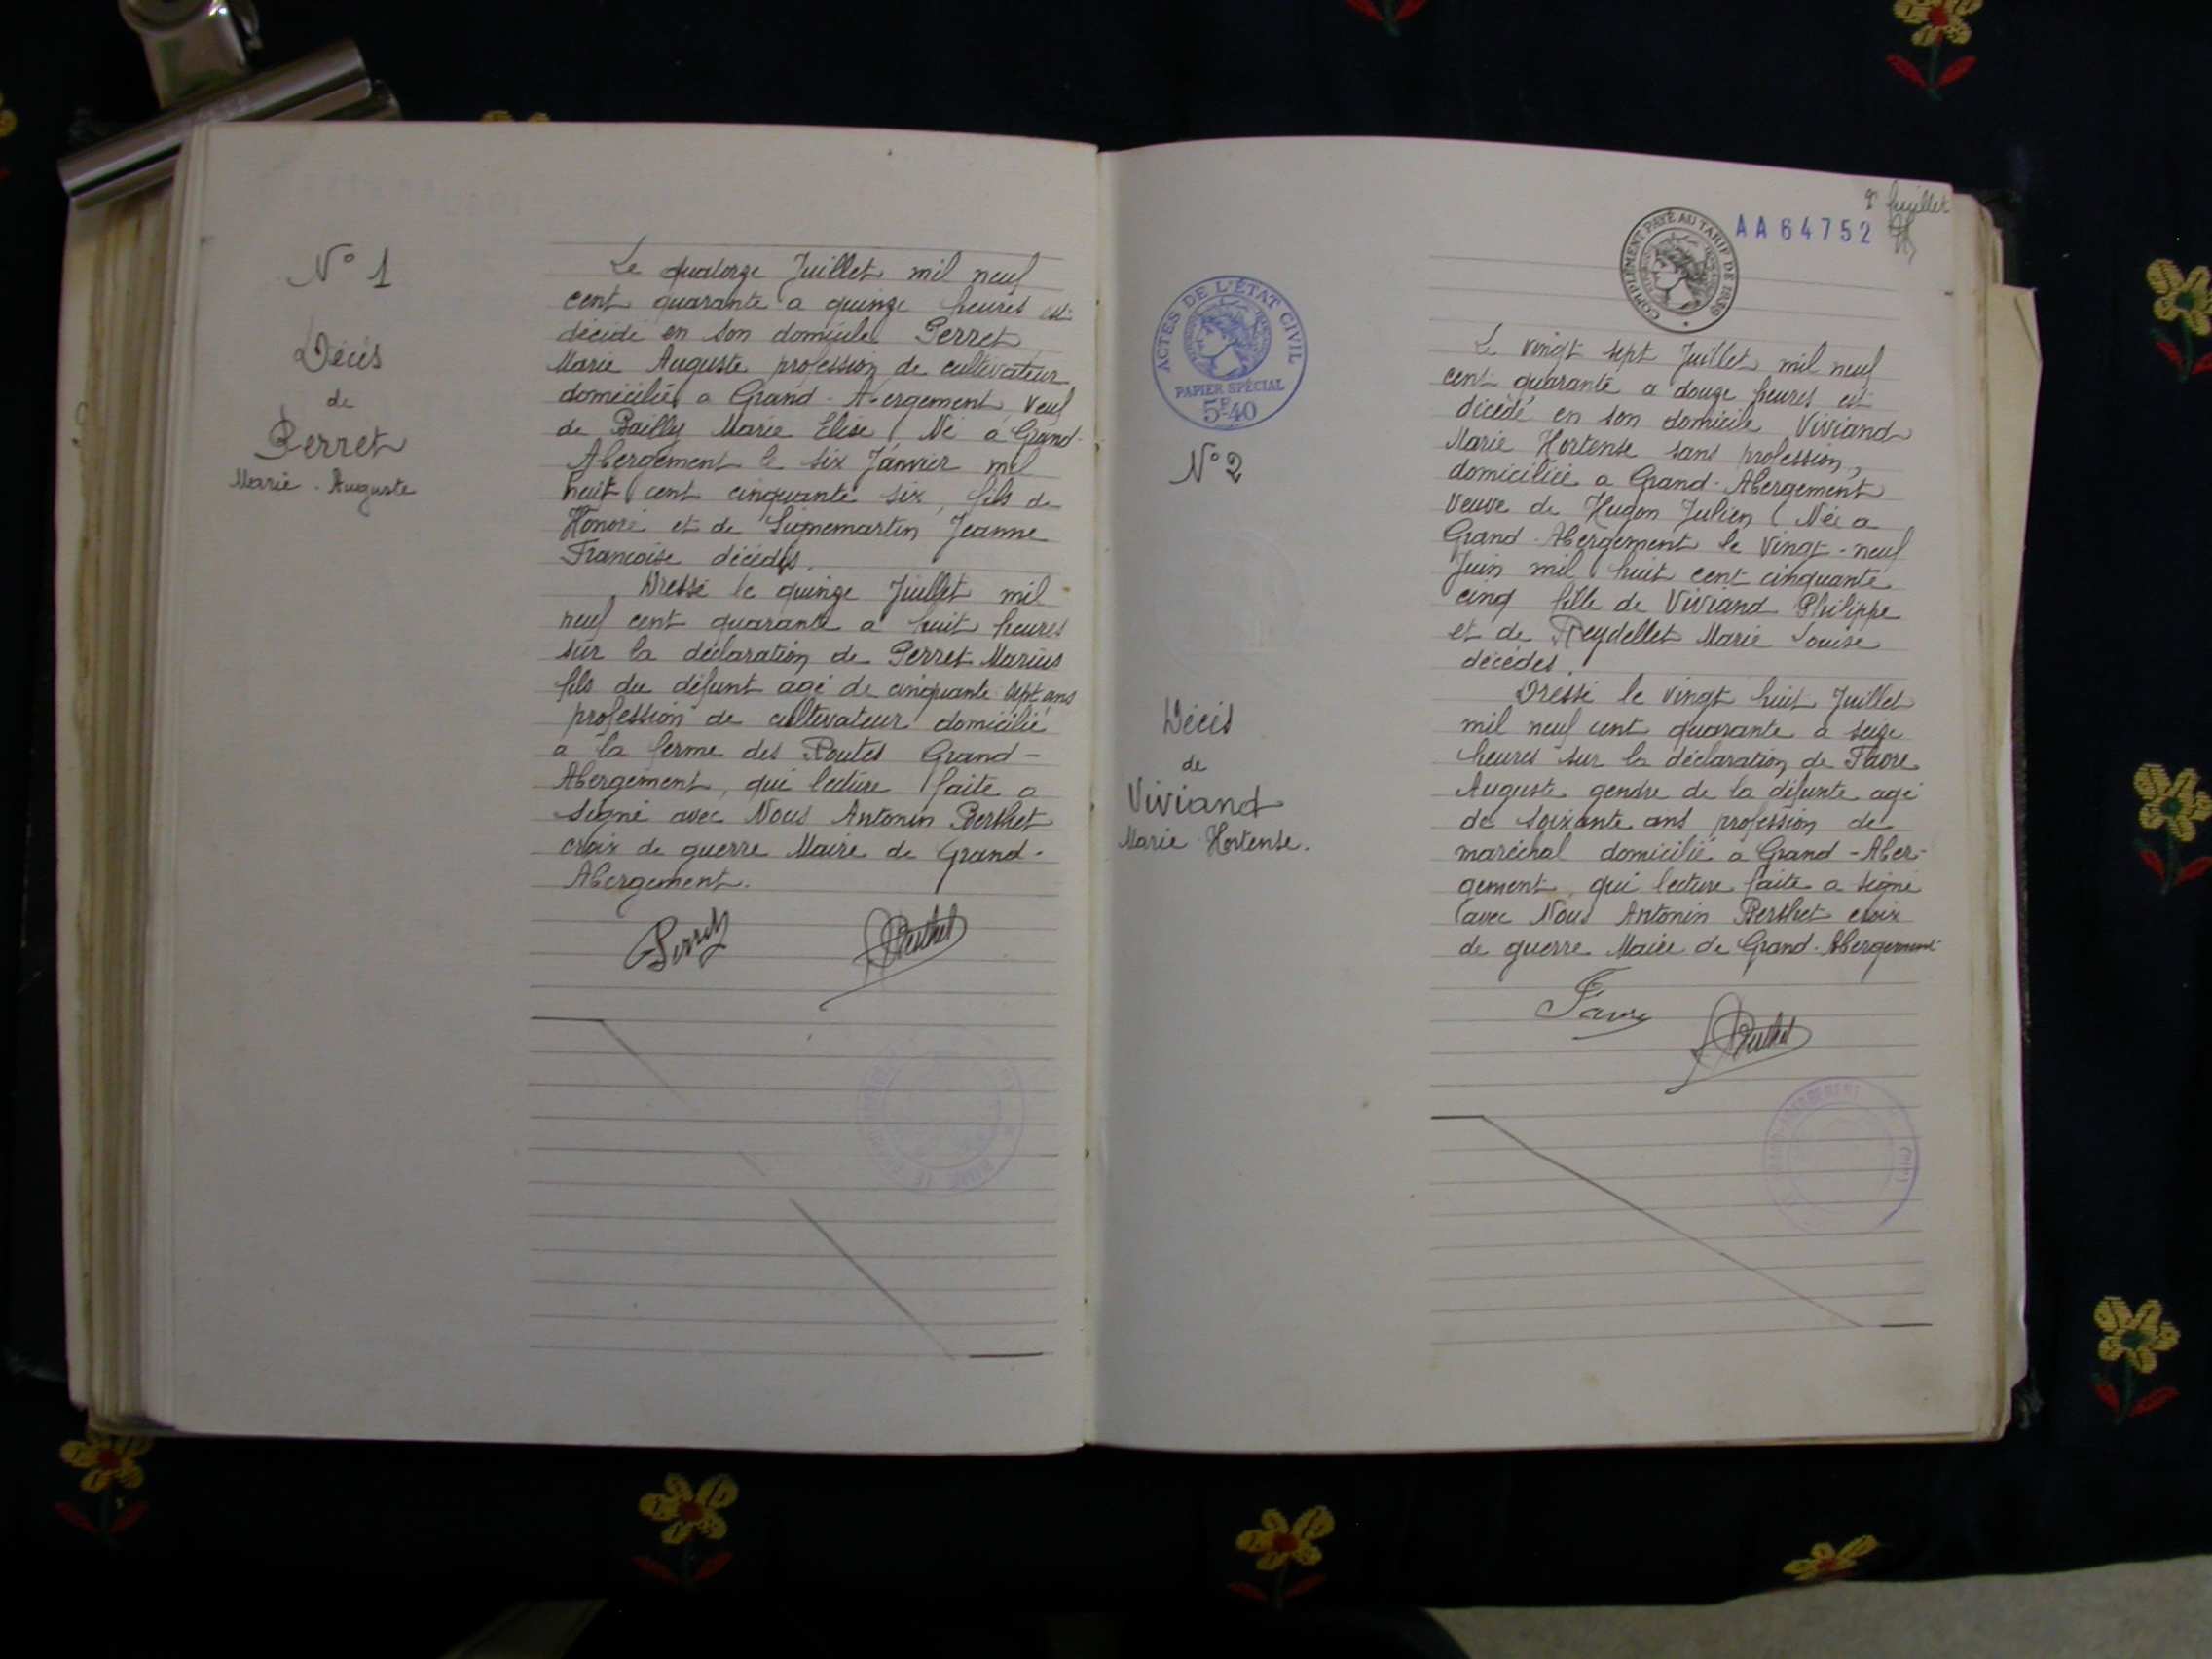 N° 1
Décès
de
Perret
Marie-Auguste
Le quatorze Juillet mil neuf
cent quarante a quinze heures est
décédé en son domicile Perret
Marie Auguste profession de cultivateur
domicilié a Grand-Abergement, Veuf
de Bailly Marie Elise, Né a Grand-
Abergement le six Janvier mil
huit cent cinquante six, fils de
Honoré et de Signemartin Jeanne
Francoise décédés.
Dressé le quinze Juillet mil
neuf cent quarante a huit heures
sur la déclaration de Perret Marius
fils du défunt agé de cinquante sept ans
profession de cultivateur domicilié
a la ferme des Routes Grand-
Abergement, qui lecture faite a
signé avec Nous Antonin Berthet
croix de guerre Maire de Grand-
Abergement.
Perret
Berthet
2e feuillet
AA 64752
COMPLÉMENT PAYÉ AU TARIF DE 1939
ACTES DE L'ÉTAT CIVIL
PAPIER SPÉCIAL
5F40
N° 2
Décès
de
Viviand
Marie-Hortense.
Le vingt sept Juillet mil neuf
cent quarante a douze heures est
décédé en son domicile Viviand
Marie Hortense sans profession,
domiciliée a Grand-Abergement
Veuve de Hugon Julien, Née a
Grand-Abergement le Vingt-neuf
Juin mil huit cent cinquante
cinq fille de Viviand Philippe
et de Reydellet Marie Louise
décédés.
Dressé le vingt huit Juillet
mil neuf cent quarante a seize
heures sur la déclaration de Favre
Auguste gendre de la défunte agé
de soixante ans profession de
maréchal domicilié a Grand-Aber-
gement, qui lecture faite a signé
avec Nous Antonin Berthet croix
de guerre Maire de Grand-Abergement
Favre
Berthet